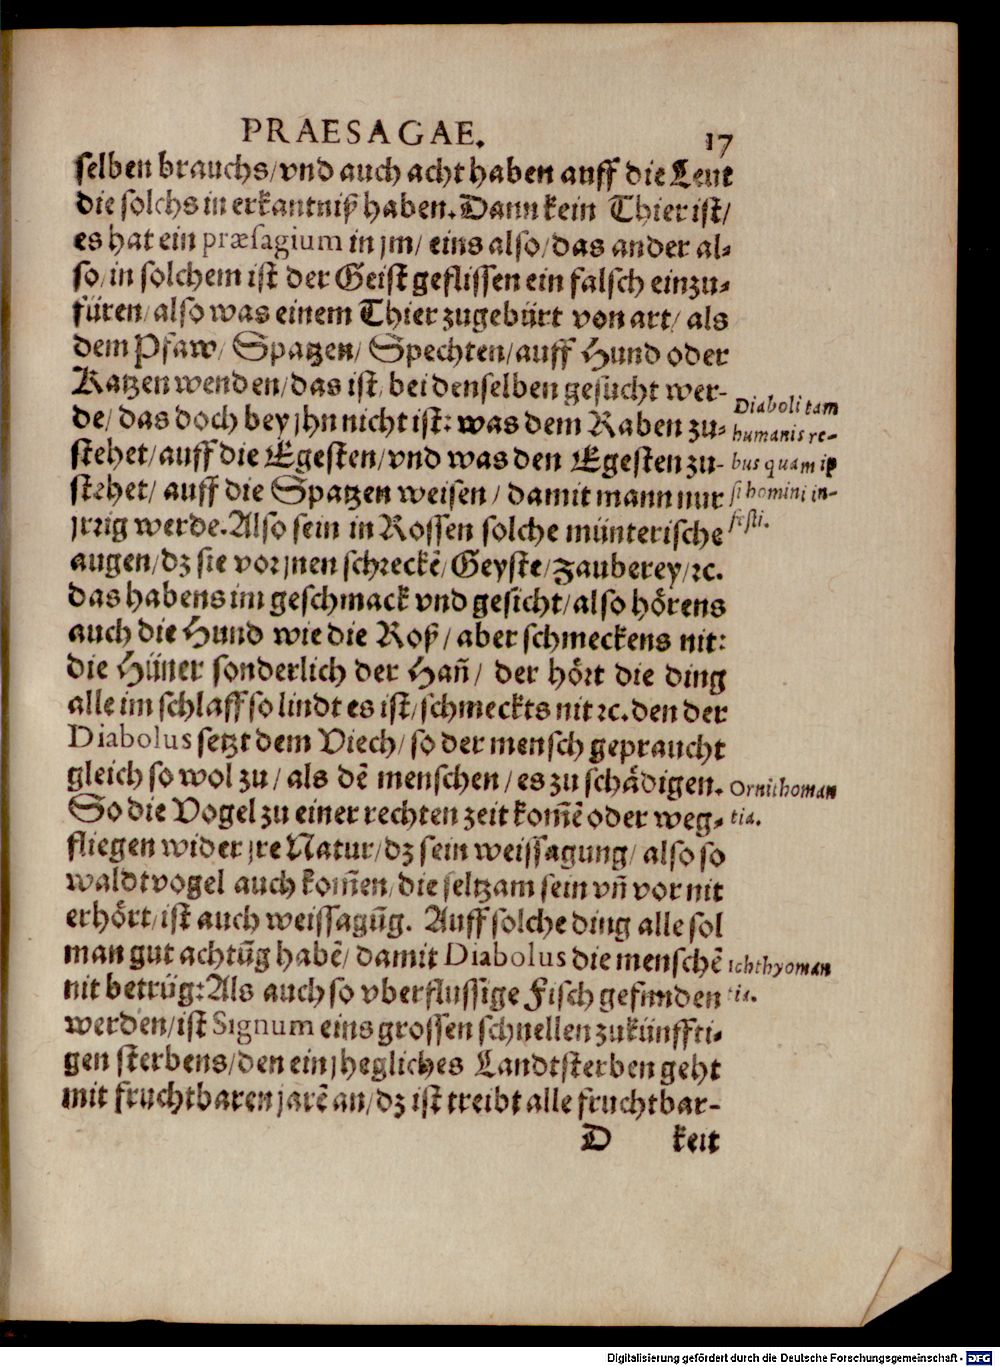 PRAESAGAE. 17
selben brauchs/vnd auch acht haben auff die Leut
die solchs in erkantniß haben. Dann kein Thier ist/
es hat ein præsagium in jm/ eins also/das ander al-
so/in solchem ist der Geist geflissen ein falsch einzu-
füren/also was einem Thier zugebürt von art/ als
dem Pfaw/ Spatzen/ Spechten/auff Hund oder
Katzen wenden/das ist/ bei denselben gesücht wer-
de/ das doch bey jhn nicht ist: was dem Raben zu-
stehet/auff die Egesten/vnd was den Egesten zu-
stehet/ auff die Spatzen weisen / damit mann nur
jrrig werde. Also sein in Rossen solche münterische
augen/dz sie vor jnen schreckē/ Geyste/zauberey/ꝛc.
das habens im geschmack vnd gesicht/also hörens
auch die Hund wie die Roß/ aber schmeckens nit:
die Hüner sonderlich der Hañ/ der hört die ding
alle im schlaff so lindt es ist/schmeckts nit ꝛc. den der
Diabolus setzt dem Viech/so der mensch gepraucht
gleich so wol zu/als dē menschen/es zu schädigen.
So die Vogel zu einer rechten zeit kom̃ē oder weg-
fliegen wider jre Natur/dz sein weissagung/ also so
waldtvogel auch kom̃en/die seltzam sein vñ vor nit
erhört/ist auch weissagũg. Auff solche ding alle sol
man gut achtũg habē/ damit Diabolus die menschē
nit betrüg: Als auch so vberflüssige Fisch gefunden
werden/ist Signum eins grossen schnellen zukünffti-
gen sterbens/den ein jhegliches Landtsterben geht
mit fruchtbaren jarē an/dz ist treibt alle fruchtbar-
D keit
Diaboli tam
humanis re-
bus quam ip
si homini in-
festi.
Ornithoman
tia.
Ichthyoman
tia.
Digitalisierung gefördert durch die Deutsche Forschungsgemeinschaft - DFG